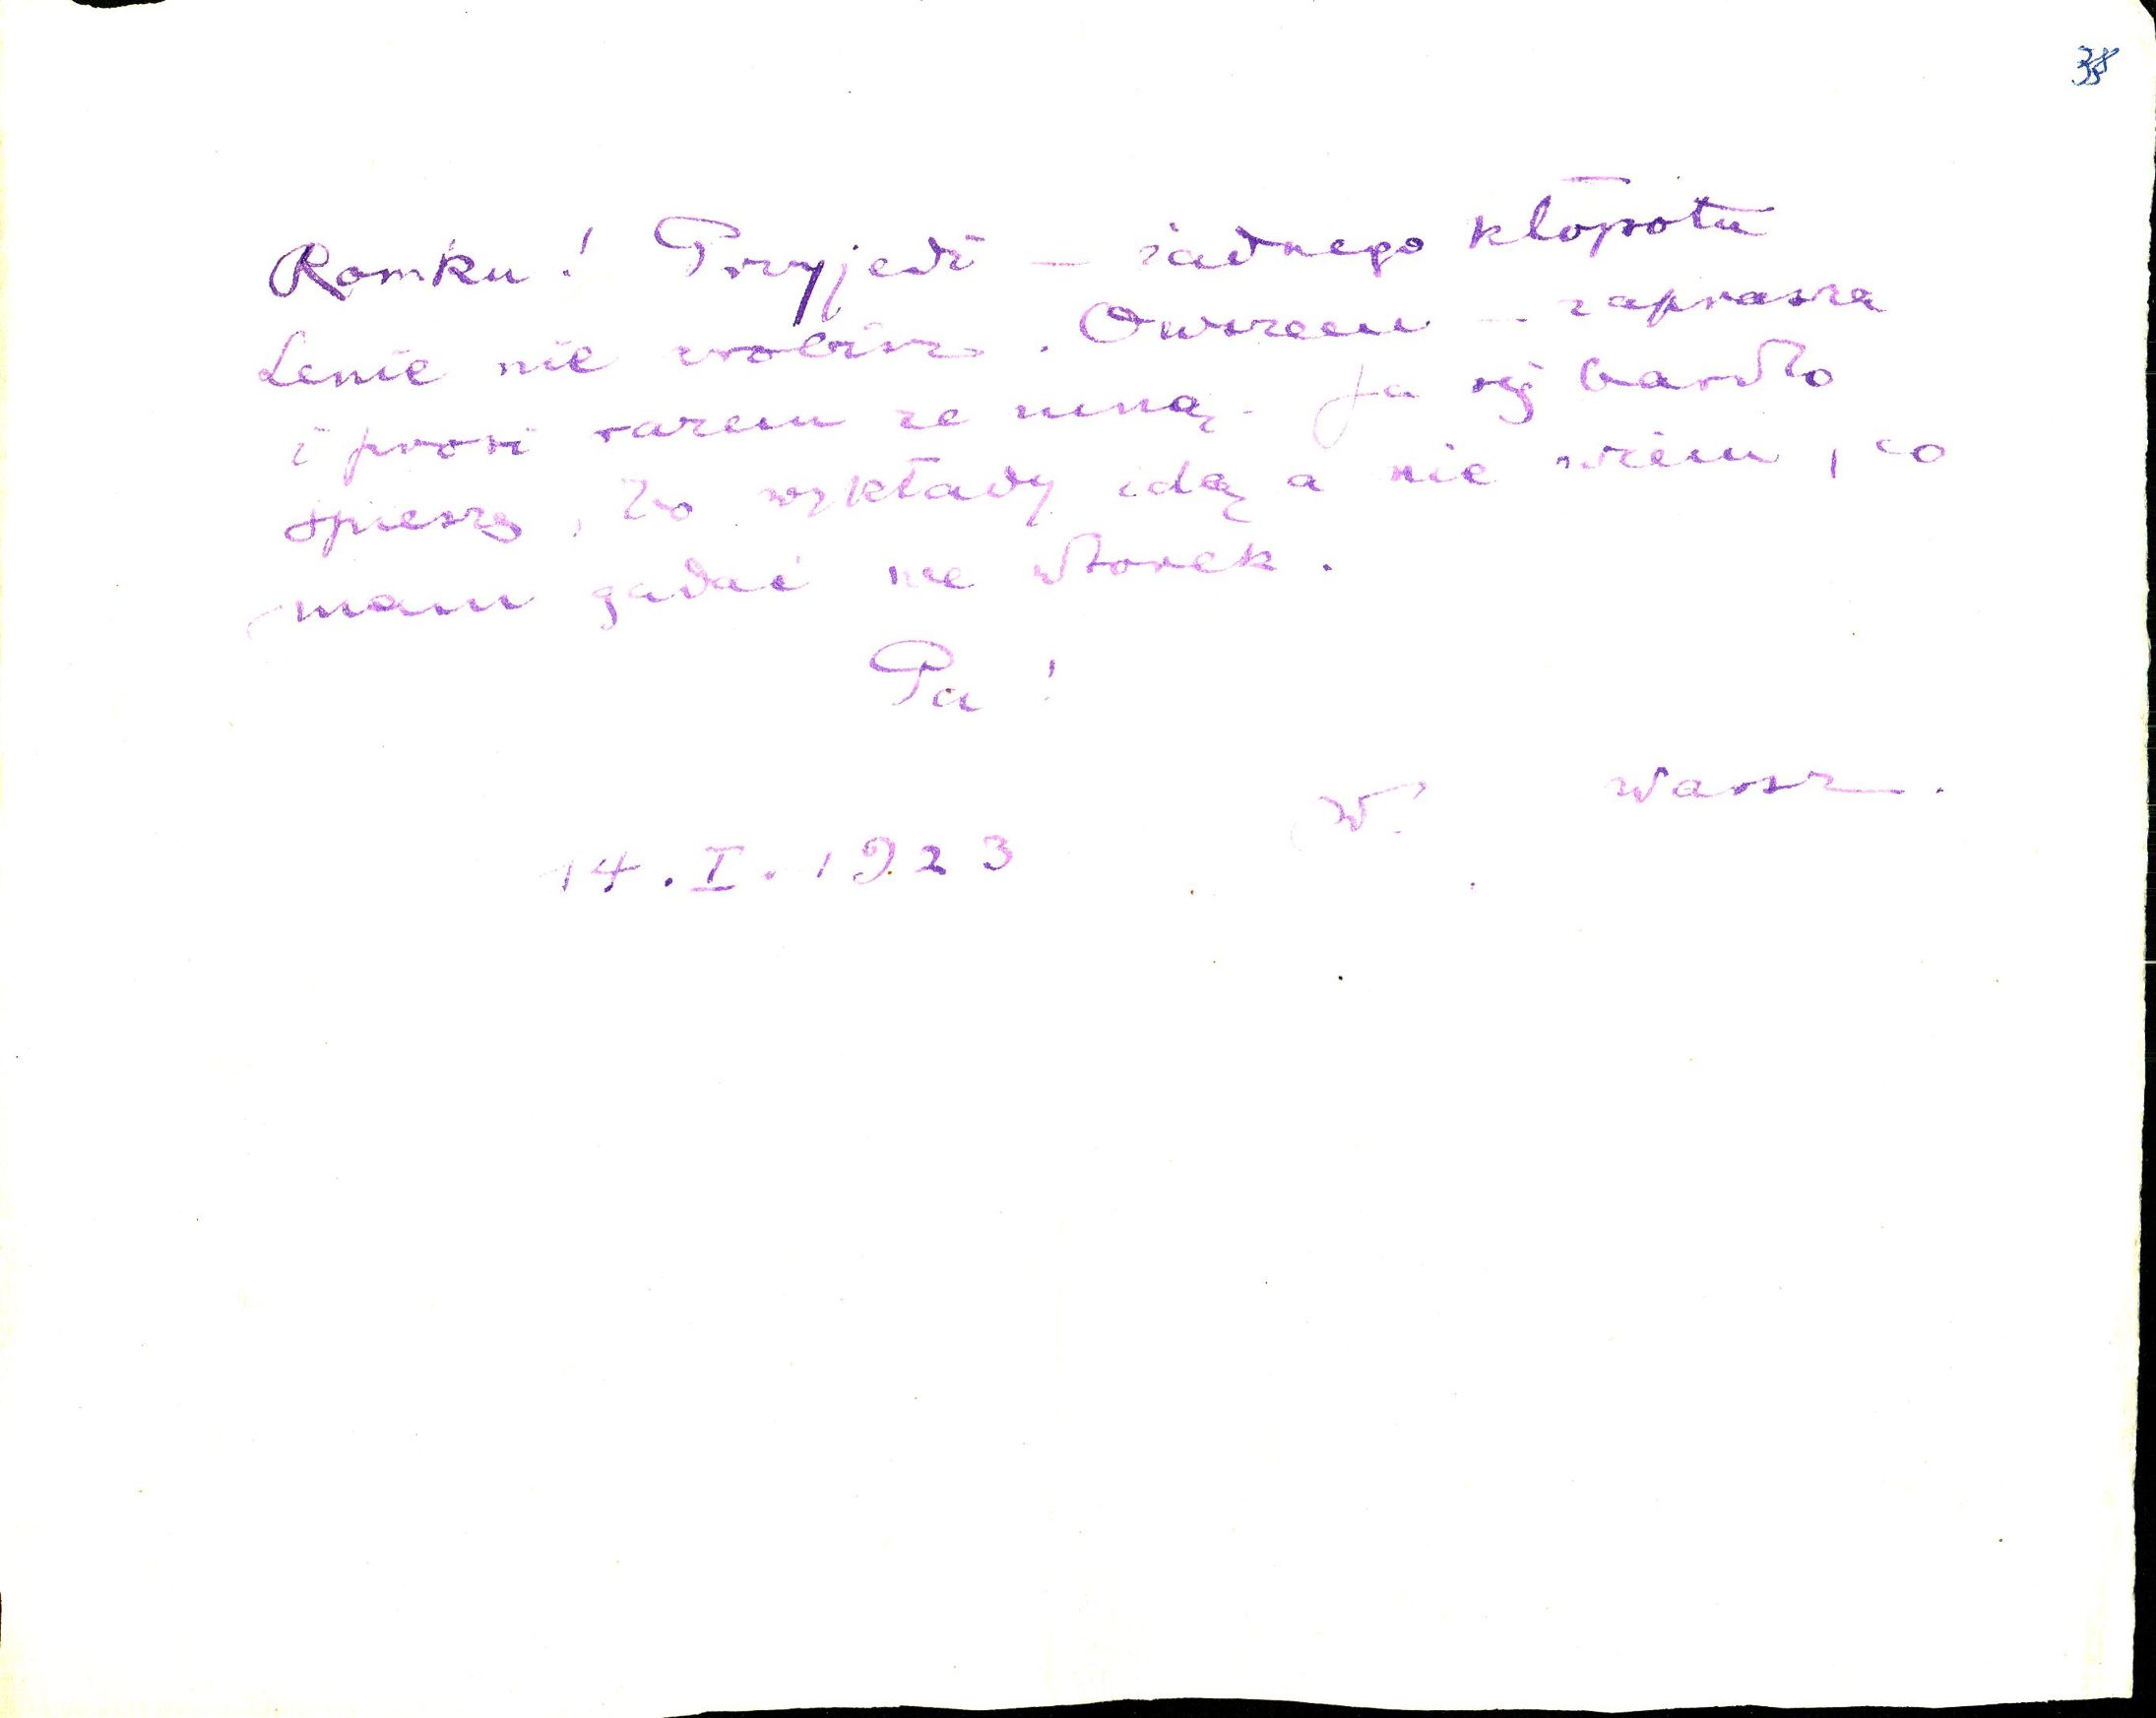 38
Romku! Przyjedź — żadnego kłopotu
Lenie nie zrobisz. Owszem — zaprasza
i prosi razem ze mną. Ja się bardzo
spieszę, bo wykłady idą a nie wiem, co
mam gadać we wtorek.
Pa!
W. Warsz.
14.I.1923